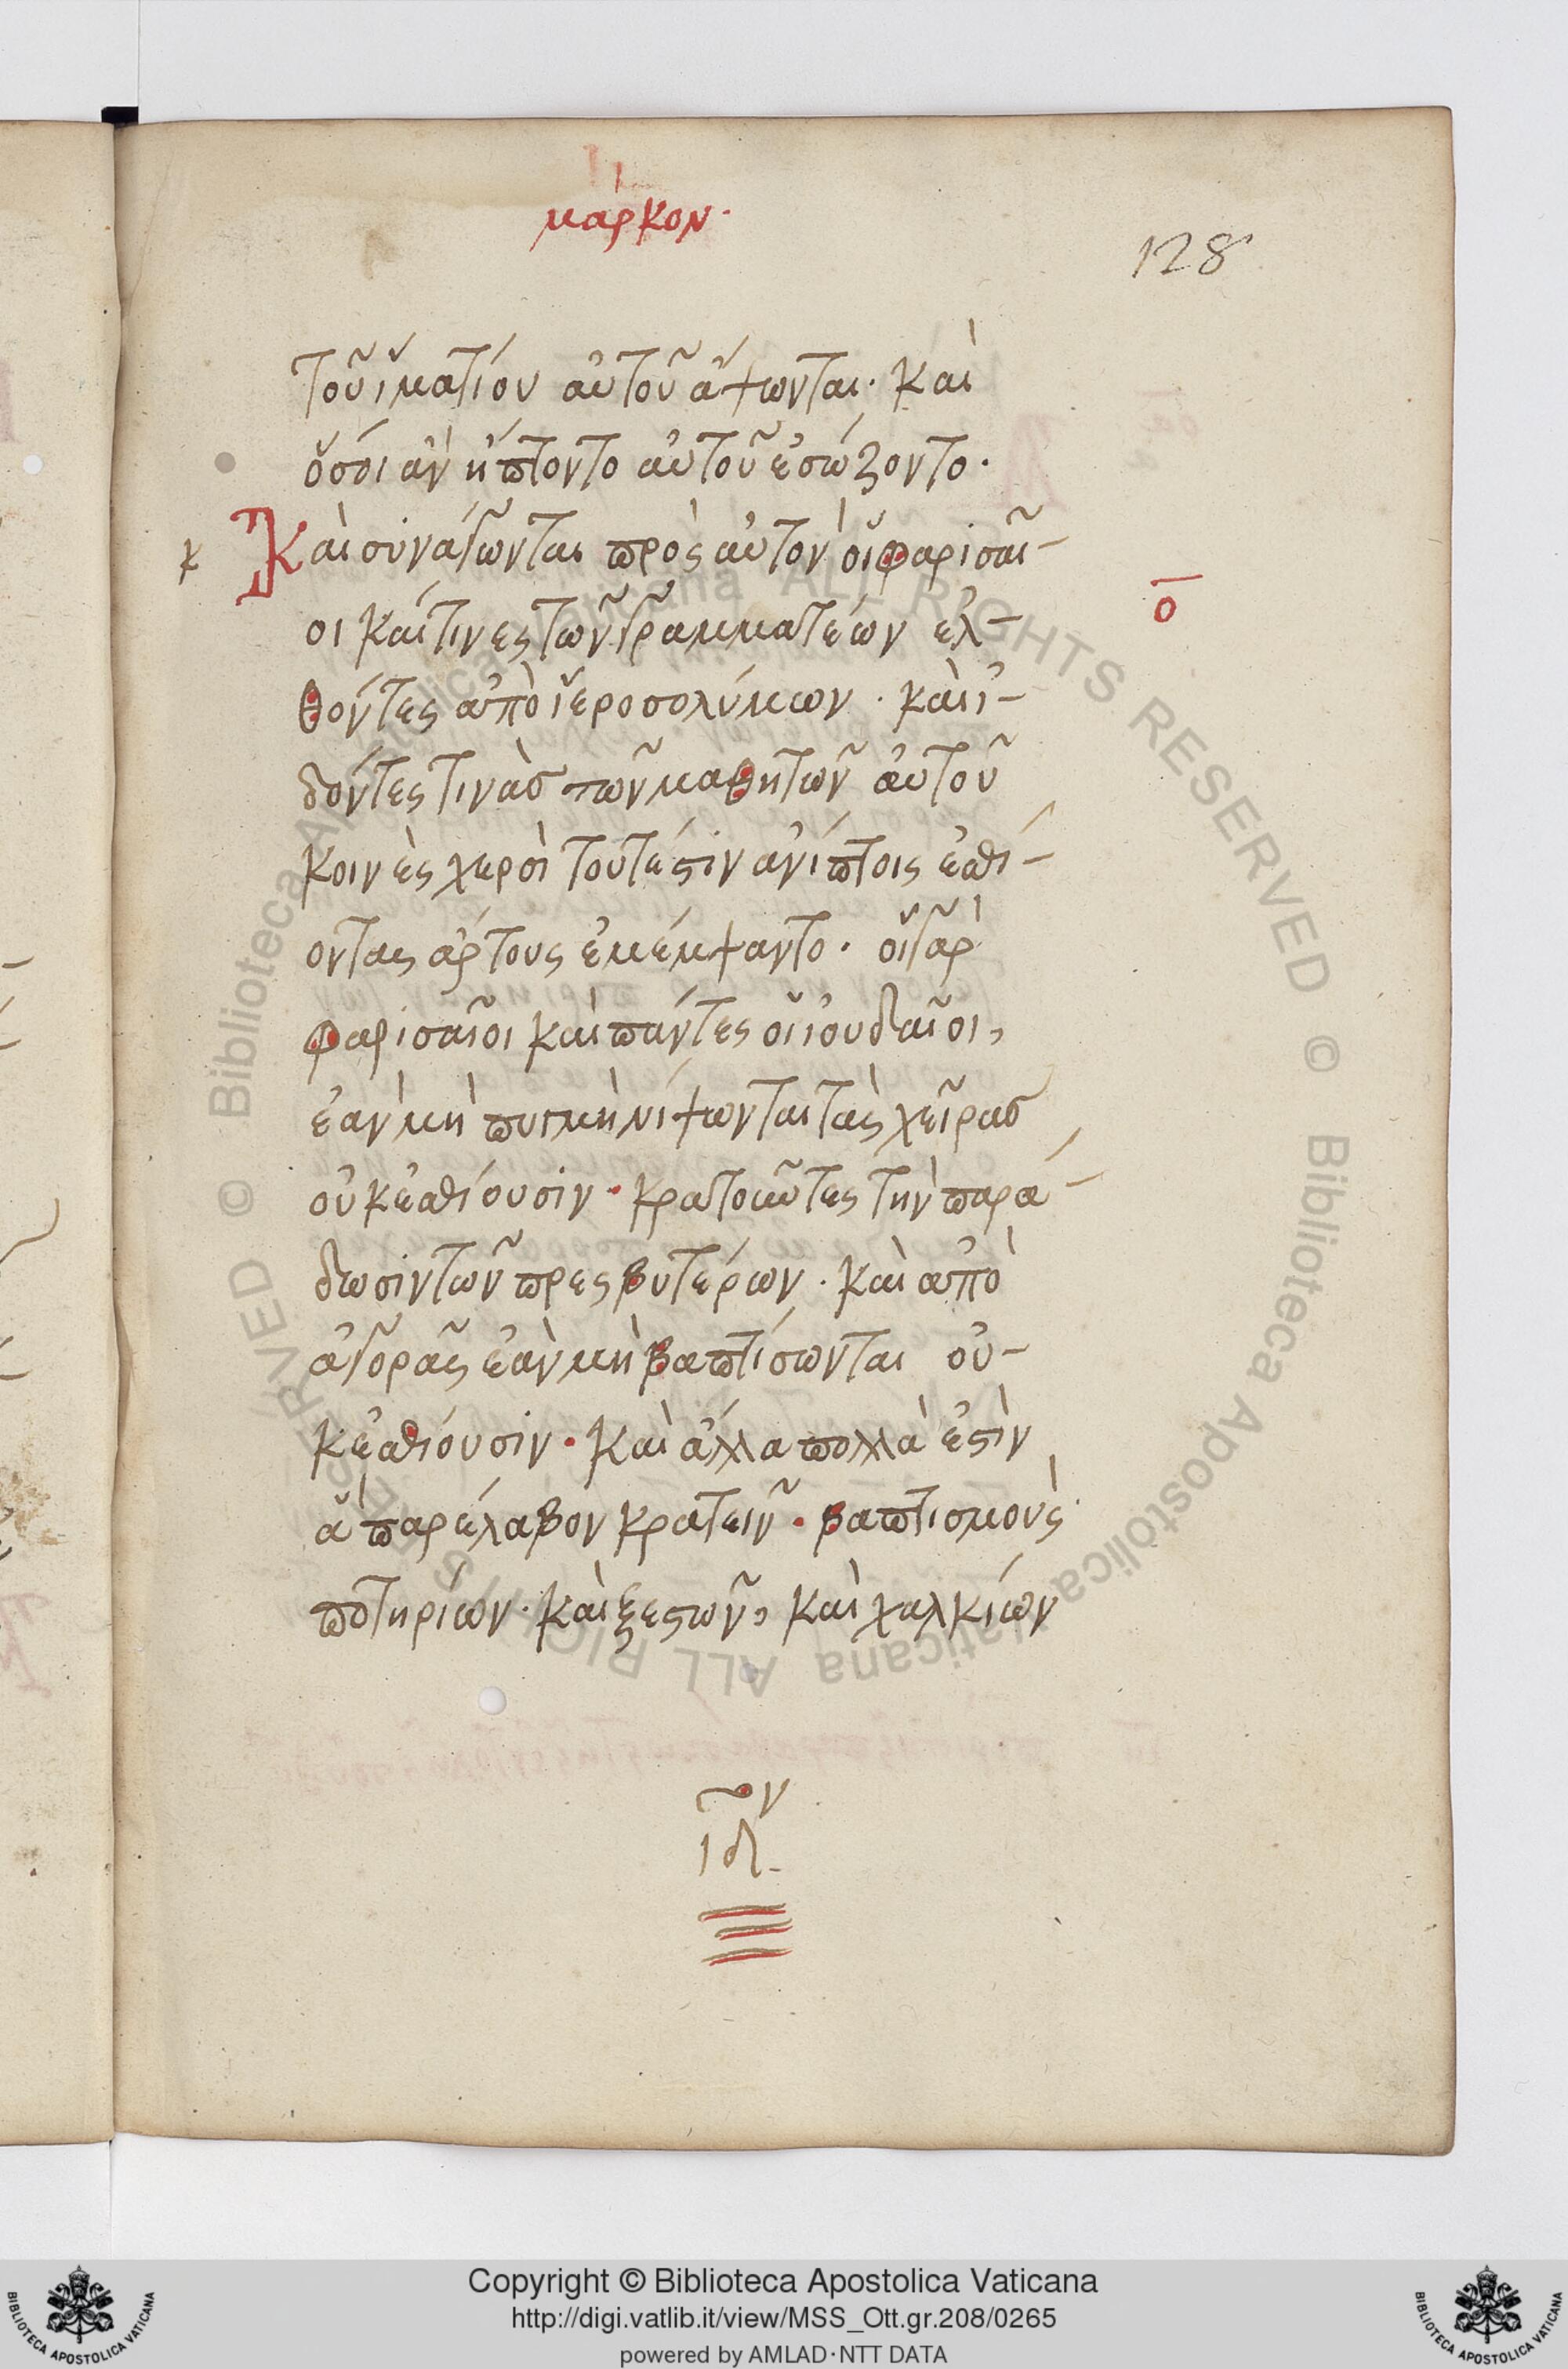 μάρκον·
128
τοῦ ἱματίου αὐτοῦ ἅψωνται· καὶ
ὅσοι ἂν ἥπτοντο αὐτοῦ ἐσώζοντο·
Καὶ συνάγωνται πρὸς αὐτὸν οἱ φαρισαῖ-
ο
οι καί τινες τῶν γραμματέων ἐλ-
θόντες ἀπὸ ἱεροσολύμων · καὶ ἰ-
δόντες τινὰσ τῶν μαθητῶν αὐτοῦ
κοινὲς χερσὶ τουτέστιν ἀνίπτοις ἐσθί-
οντας ἄρτους ἐμέμψαντο · οἱ γὰρ
φαρισαῖοι καὶ πάντες οἱ ἰουδαῖοι,
ἐὰν μὴ πυγμὴ νίψωνται τὰς χεῖρασ
οὐκ ἐσθίουσιν · κρατοῦντες τὴν παρά-
δωσιν τῶν πρεσβυτέρων · καὶ ἀπὸ
ἀγορᾶς ἐὰν μὴ βαπτίσωνται οὐ-
κ ἐσθίουσιν · καὶ ἄλλα πολλά ἐστὶν
ἃ παρέλαβον κρατεῖν · βαπτισμοὺς
ποτηρίων · καὶ ξεστῶν, καὶ χαλκίων
ιδ
© Biblioteca Apostolica Vaticana ALL RIGHTS RESERVED © Biblioteca Apostolica Vaticana ALL RIGHTS RESERVED
Copyright © Biblioteca Apostolica Vaticana
http://digi.vatlib.it/view/MSS_Ott.gr.208/0265
powered by AMLAD·NTT DATA
BIBLIOTECA APOSTOLICA VATICANA
BIBLIOTECA APOSTOLICA VATICANA